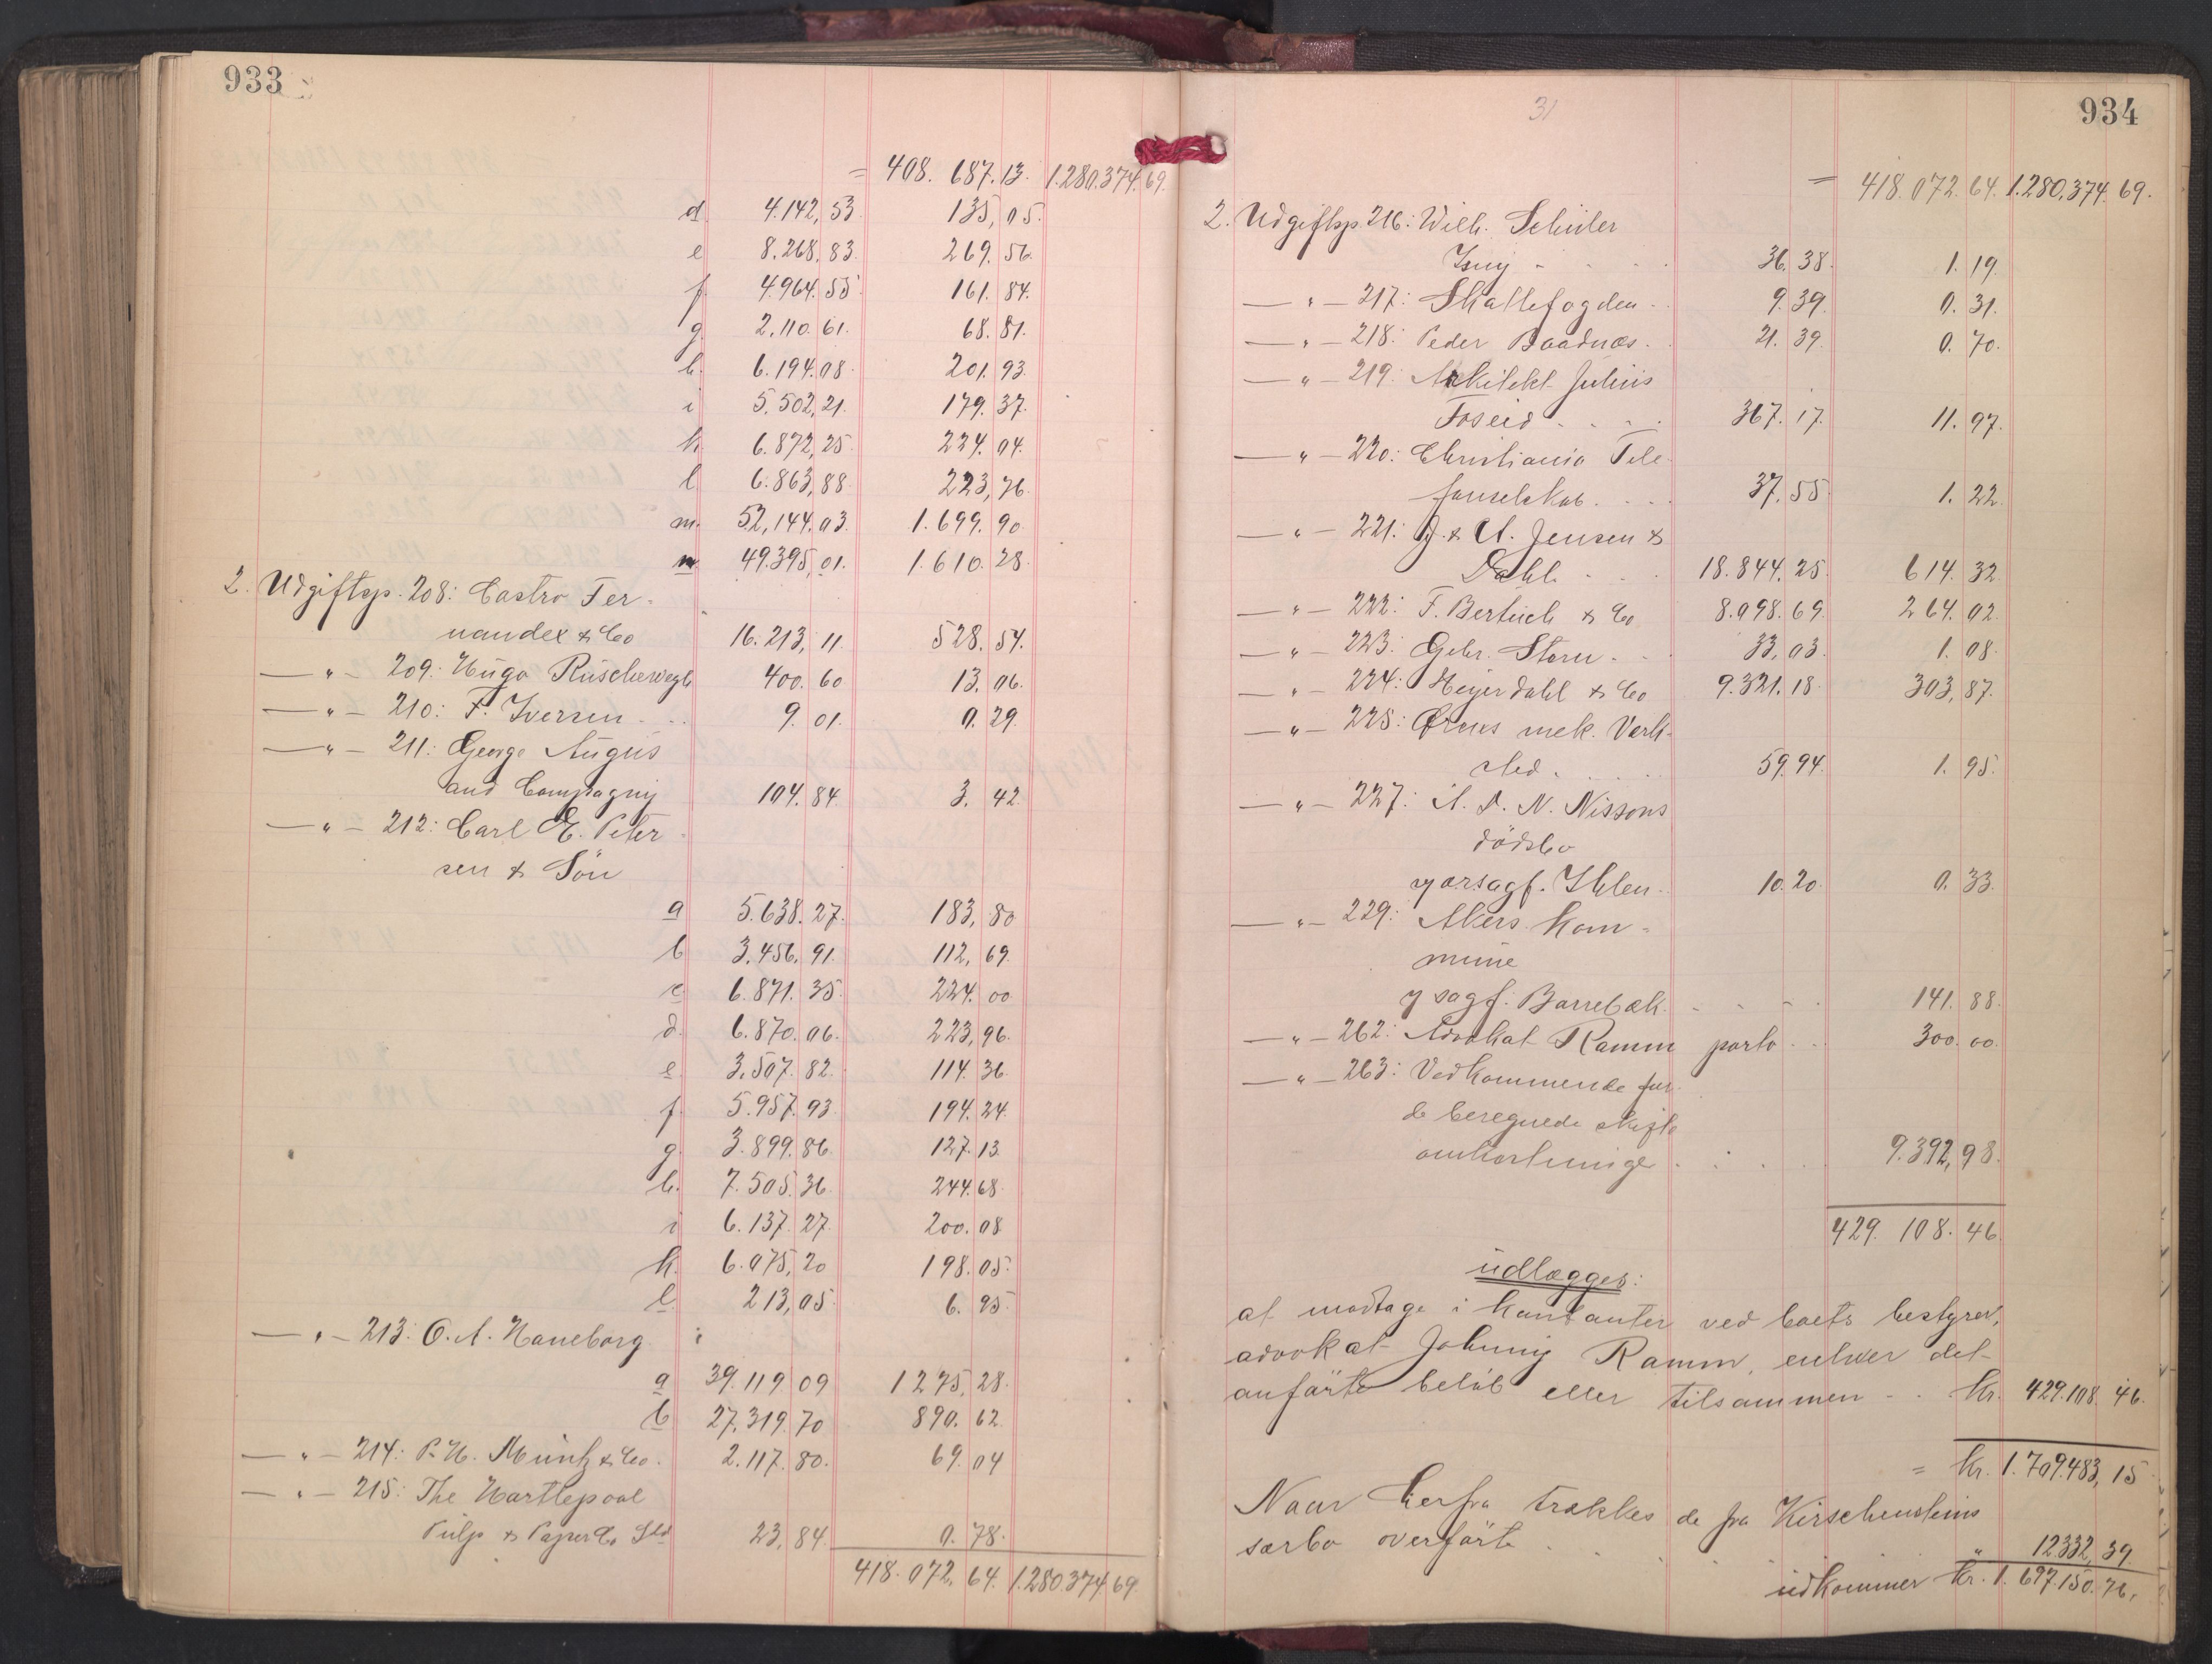 933
= 408.687.13. 1.280.374.69.
d 4.142,53 135,05.
e 8.268.83. 269.56.
f. 4.964.55. 161.84.
g. 2.110.61. 68.81.
h. 6.194.08. 201.93.
i 5.502,21. 179.37.
k. 6.872,25 224.04.
l. 6.863,88. 223,76.
m. 52,144.03. 1.699.90.
n. 49.395,01. 1.610.28.
2. Udgiftsp. 208: Castro Fer-
nandex & Co 16.213,11 528.54.
—"— 209: Hugo Rüscheweyh 400.60 13.06.
—"— 210: F. Iversen 9.01. 0.29.
—"— 211: George Angus
and Compagny 104.84. 3.42.
—"— 212: Carl E. Peter-
sen & Sön
a 5.638.27. 183,80
b 3.456.91. 112,69.
c 6.871.35. 224.00
d. 6.870.06. 223,96.
e. 3.507.82. 114.36.
f. 5.957.93. 194.24.
g. 3.899.86. 127.13.
h. 7.505.36. 244.68.
i 6.137.27. 200.08
k. 6.075,20 198.05.
l. 213,05 6.95.
—"— 213: O. A. Haneborg:
a 39.119 09 1275,28.
b 27.319.70 890.62
—"— 214: P. H. Müntz & Co. 2.117.80. 69.04
—"— 215: The Hartlepool
Pulp & Paper Co Ltd 23,84. 0.78.
418.072,64. 1.280.374.69.
31
934
= 418.072.64. 1.280,374.69.
2. Udgiftsp. 216: Wilh. Schüler
Isny - - 36.38. 1.19.
—"— 217: Skattefogden 9.39. 0.31.
—"— 218: Peder Baadnæs. 21.39. 0.70.
—"— 219: Arkitekt Julius
Foseid 367.17. 11.97.
—"— 220: Christiania Tele-
fonselskab. 37,55 1.22.
—"— 221: J. & A. Jensen &
Dahl 18.844.25. 614.32.
—"— 222: F. Bertuch & Co 8.098.69. 264.02.
—"— 223: Gebr. Storn. 33,03. 1.08.
—"— 224: Heyerdahl & Co 9.321.18. 303,87.
—"— 225: Ørens mek. Verk-
sted. 59.94. 1.95.
—"— 227: A. D. N. Nissons
dödsbo
v/orsagf. Ihlen. 10.20. 0.33.
—"— 229: Akers kom-
mune
v/sagf. Barrebæk. 141.88.
—"— 262: Advokat Ramm porto 300.00.
—"— 263: Vedkommende for
de beregnede skifte
omkostninger 9.392,98.
429.108.46
udlægges:
at modtage i kontanter ved boets bestyrer,
advokat Johnny Ramm, enhver det
anförte belöb eller tilsammen - - kr. 429.108.46.
= kr. 1.709.483,15
Naar herfra trækkes de fra Kirschensteins
særbo overförte " 12332,39.
udkommer kr. 1.697.150.76,